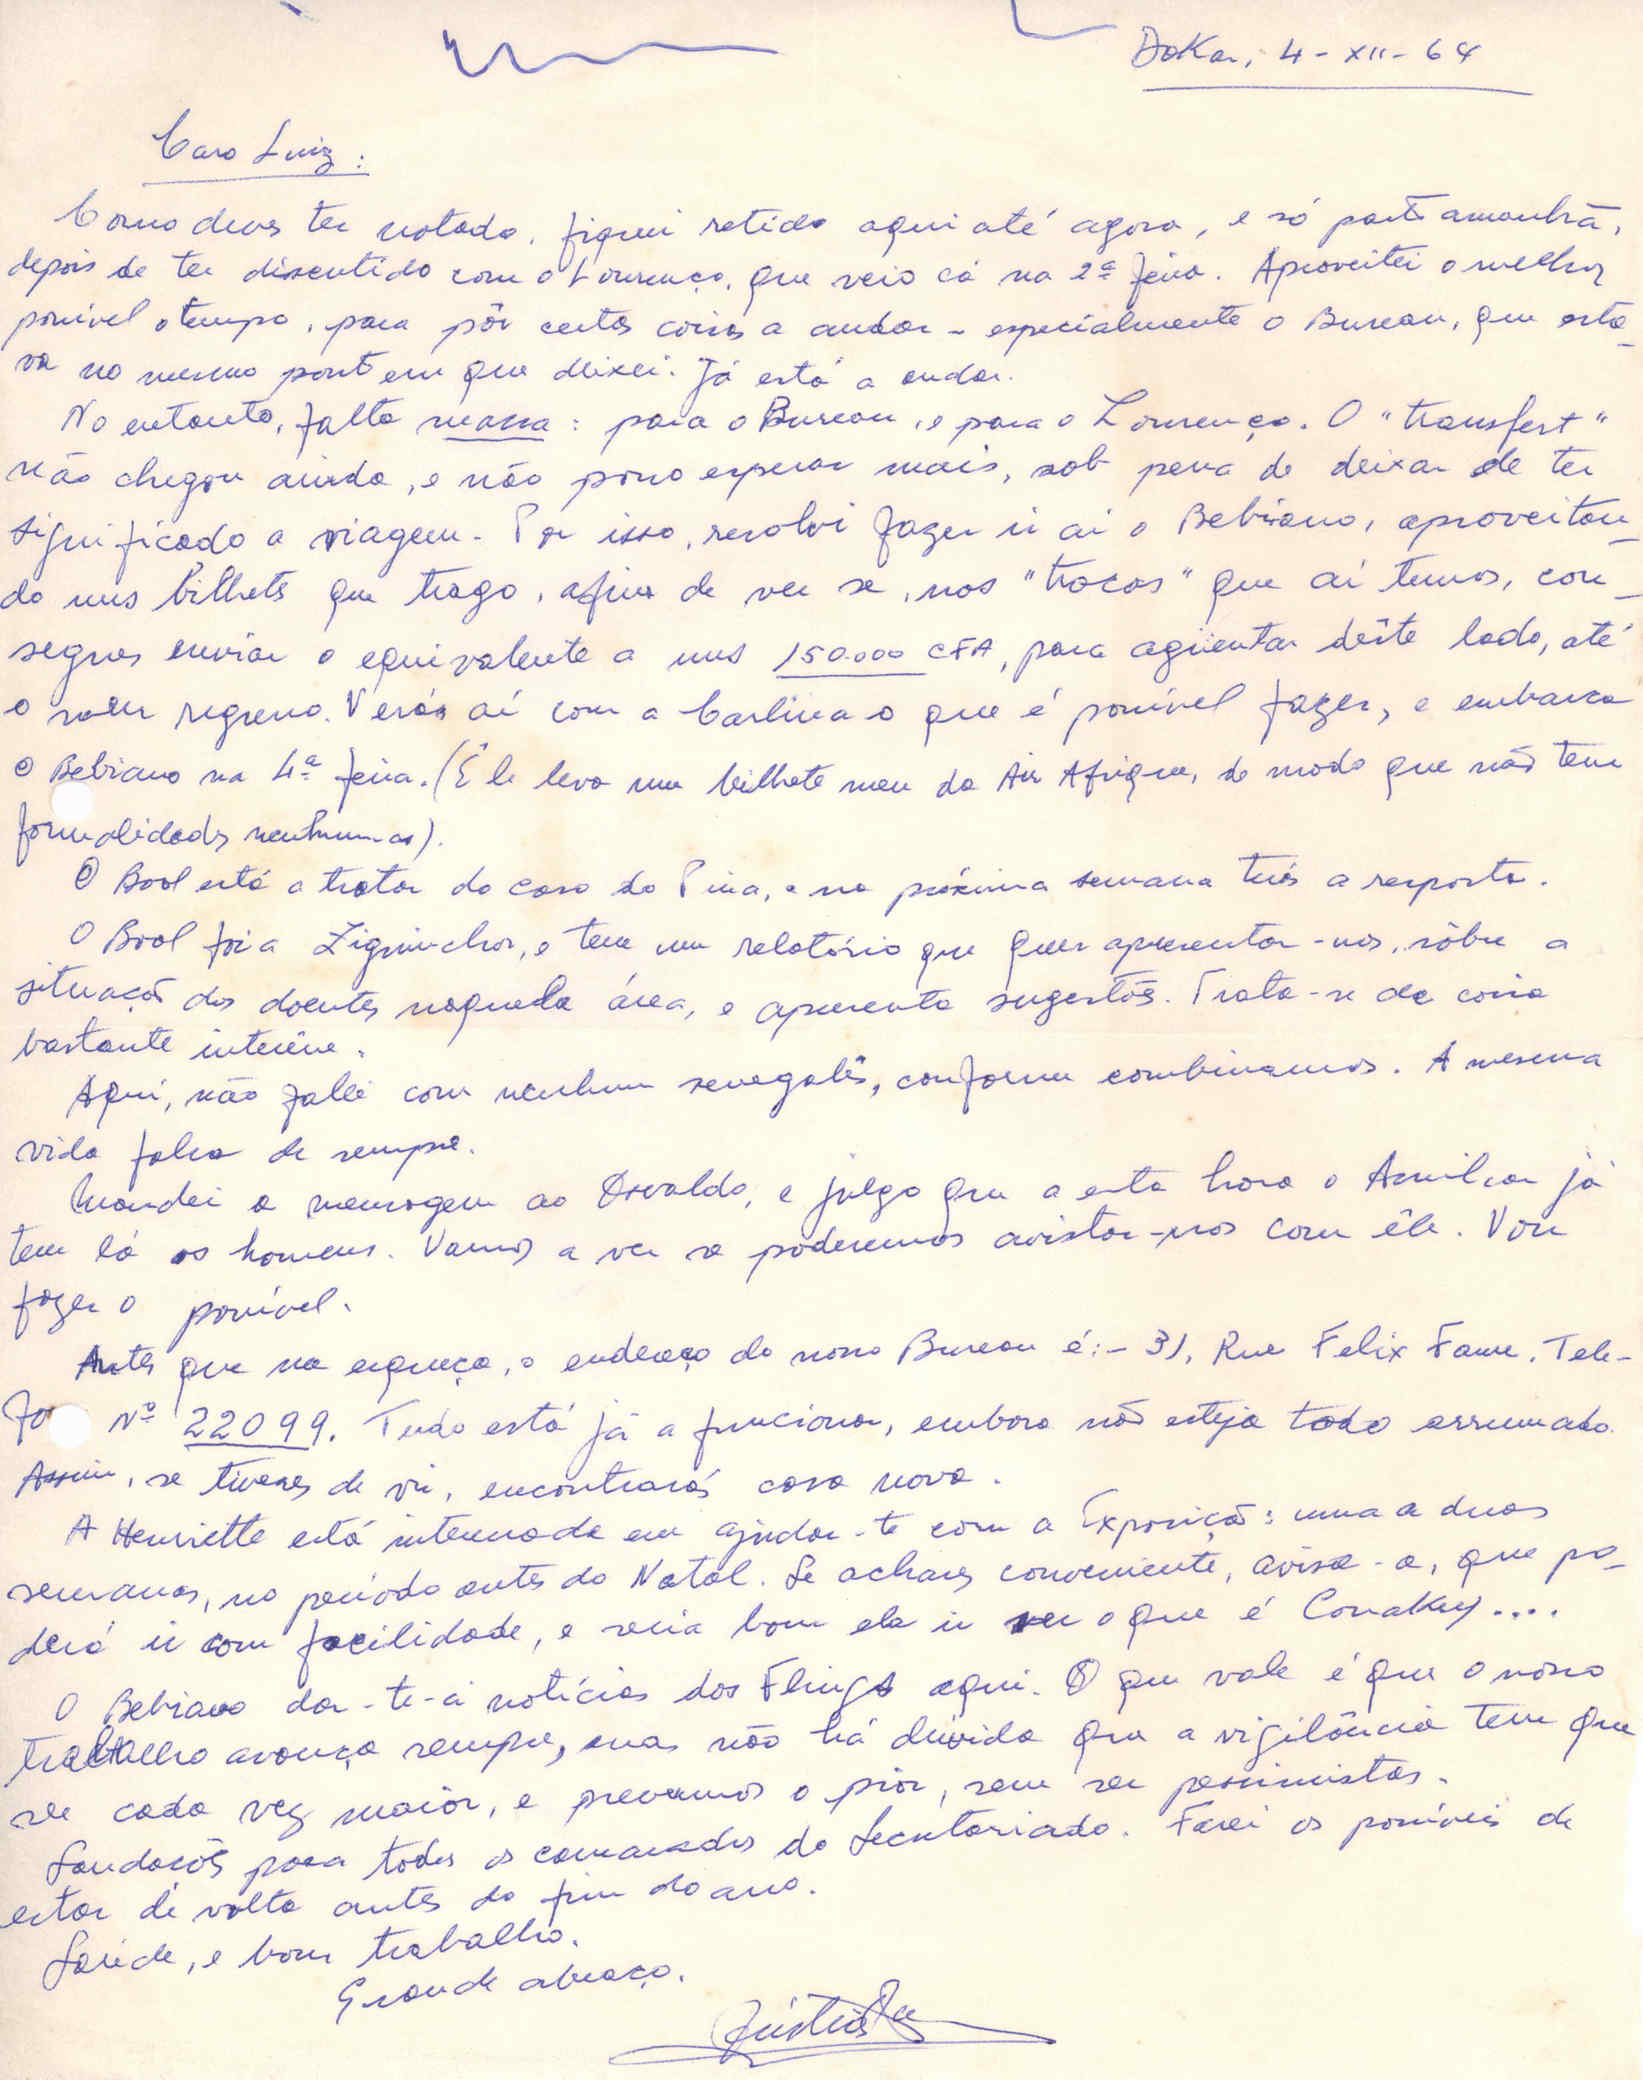 Dakar, 4-XII-64
Caro Luiz:
Como deves ter notado, fiquei retido aqui até agora, e só parto amanhã,
depois de ter discutido com o Lourenço, que veio cá na 2ª feira. Aproveitei o melhor
possível o tempo, para pôr certas coisas a andar - especialmente o Bureau, que esta-
va no mesmo ponto em que deixei. Já está a andar.
No entanto, falta massa: para o Bureau, e para o Lourenço. O "transfert"
não chegou ainda, e não posso esperar mais, sob pena de deixar de ter
significado a viagem. Por isso, resolvi fazer ir aí o Bebiano, aproveitan-
do uns bilhetes que trago, afim de ver se, nos "trocos" que aí temos, con-
segues enviar o equivalente a uns 150.000 CFA, para agüentar dêste lado, até
o nosso regresso. Verás aí com a Carlina o que é possível fazer, e embarca
o Bebiano na 4ª feira. (Êle leva um bilhete meu da Air Afrique, de modo que não tem
formalidades nenhumas).
O Boal está a tratar do caso do Pina, e na próxima semana terás a resposta.
O Boal foi a Ziguinchor, e tem um relatório que quer apresentar-nos, sôbre a
situação dos doentes naquela área, e apresenta sugestões. Trata-se de coisa
bastante
Aqui, não falei com nenhum senegalês, conforme combinamos. A mesma
vida falsa de sempre.
Mandei a mensagem ao Osvaldo, e julgo que a esta hora o Amilcar já
tem lá os homens. Vamos a ver se poderemos avistar-nos com êle. Vou
fazer o possível.
Antes que me esqueça, o endereço do nosso Bureau é:- 31, Rue Felix Faure. Tele-
fo Nº 22099. Tudo está já a funcionar, embora não esteja todo arrumado.
Assim, se tiveres de vir, encontrarás casa nova.
A Henriette está interessada em ajudar-te com a Exposição: uma a duas
semanas, no período antes do Natal. Se achares conveniente, avisa-a, que po-
derá ir com facilidade, e seria bom ela ir ver o que é Conakry....
O Bebiano dar-te-á notícias dos Flings aqui. O que vale é que o nosso
trabalho avança sempre, mas não há dúvida que a vigilância tem que
ser cada vez maior, e prevermos o pior, sem ser pessimistas.
Saudações para todos os camaradas do Secretariado. Farei os possíveis de
estar de volta antes do fim do ano.
Saúde, e bom trabalho.
Grande abraço.